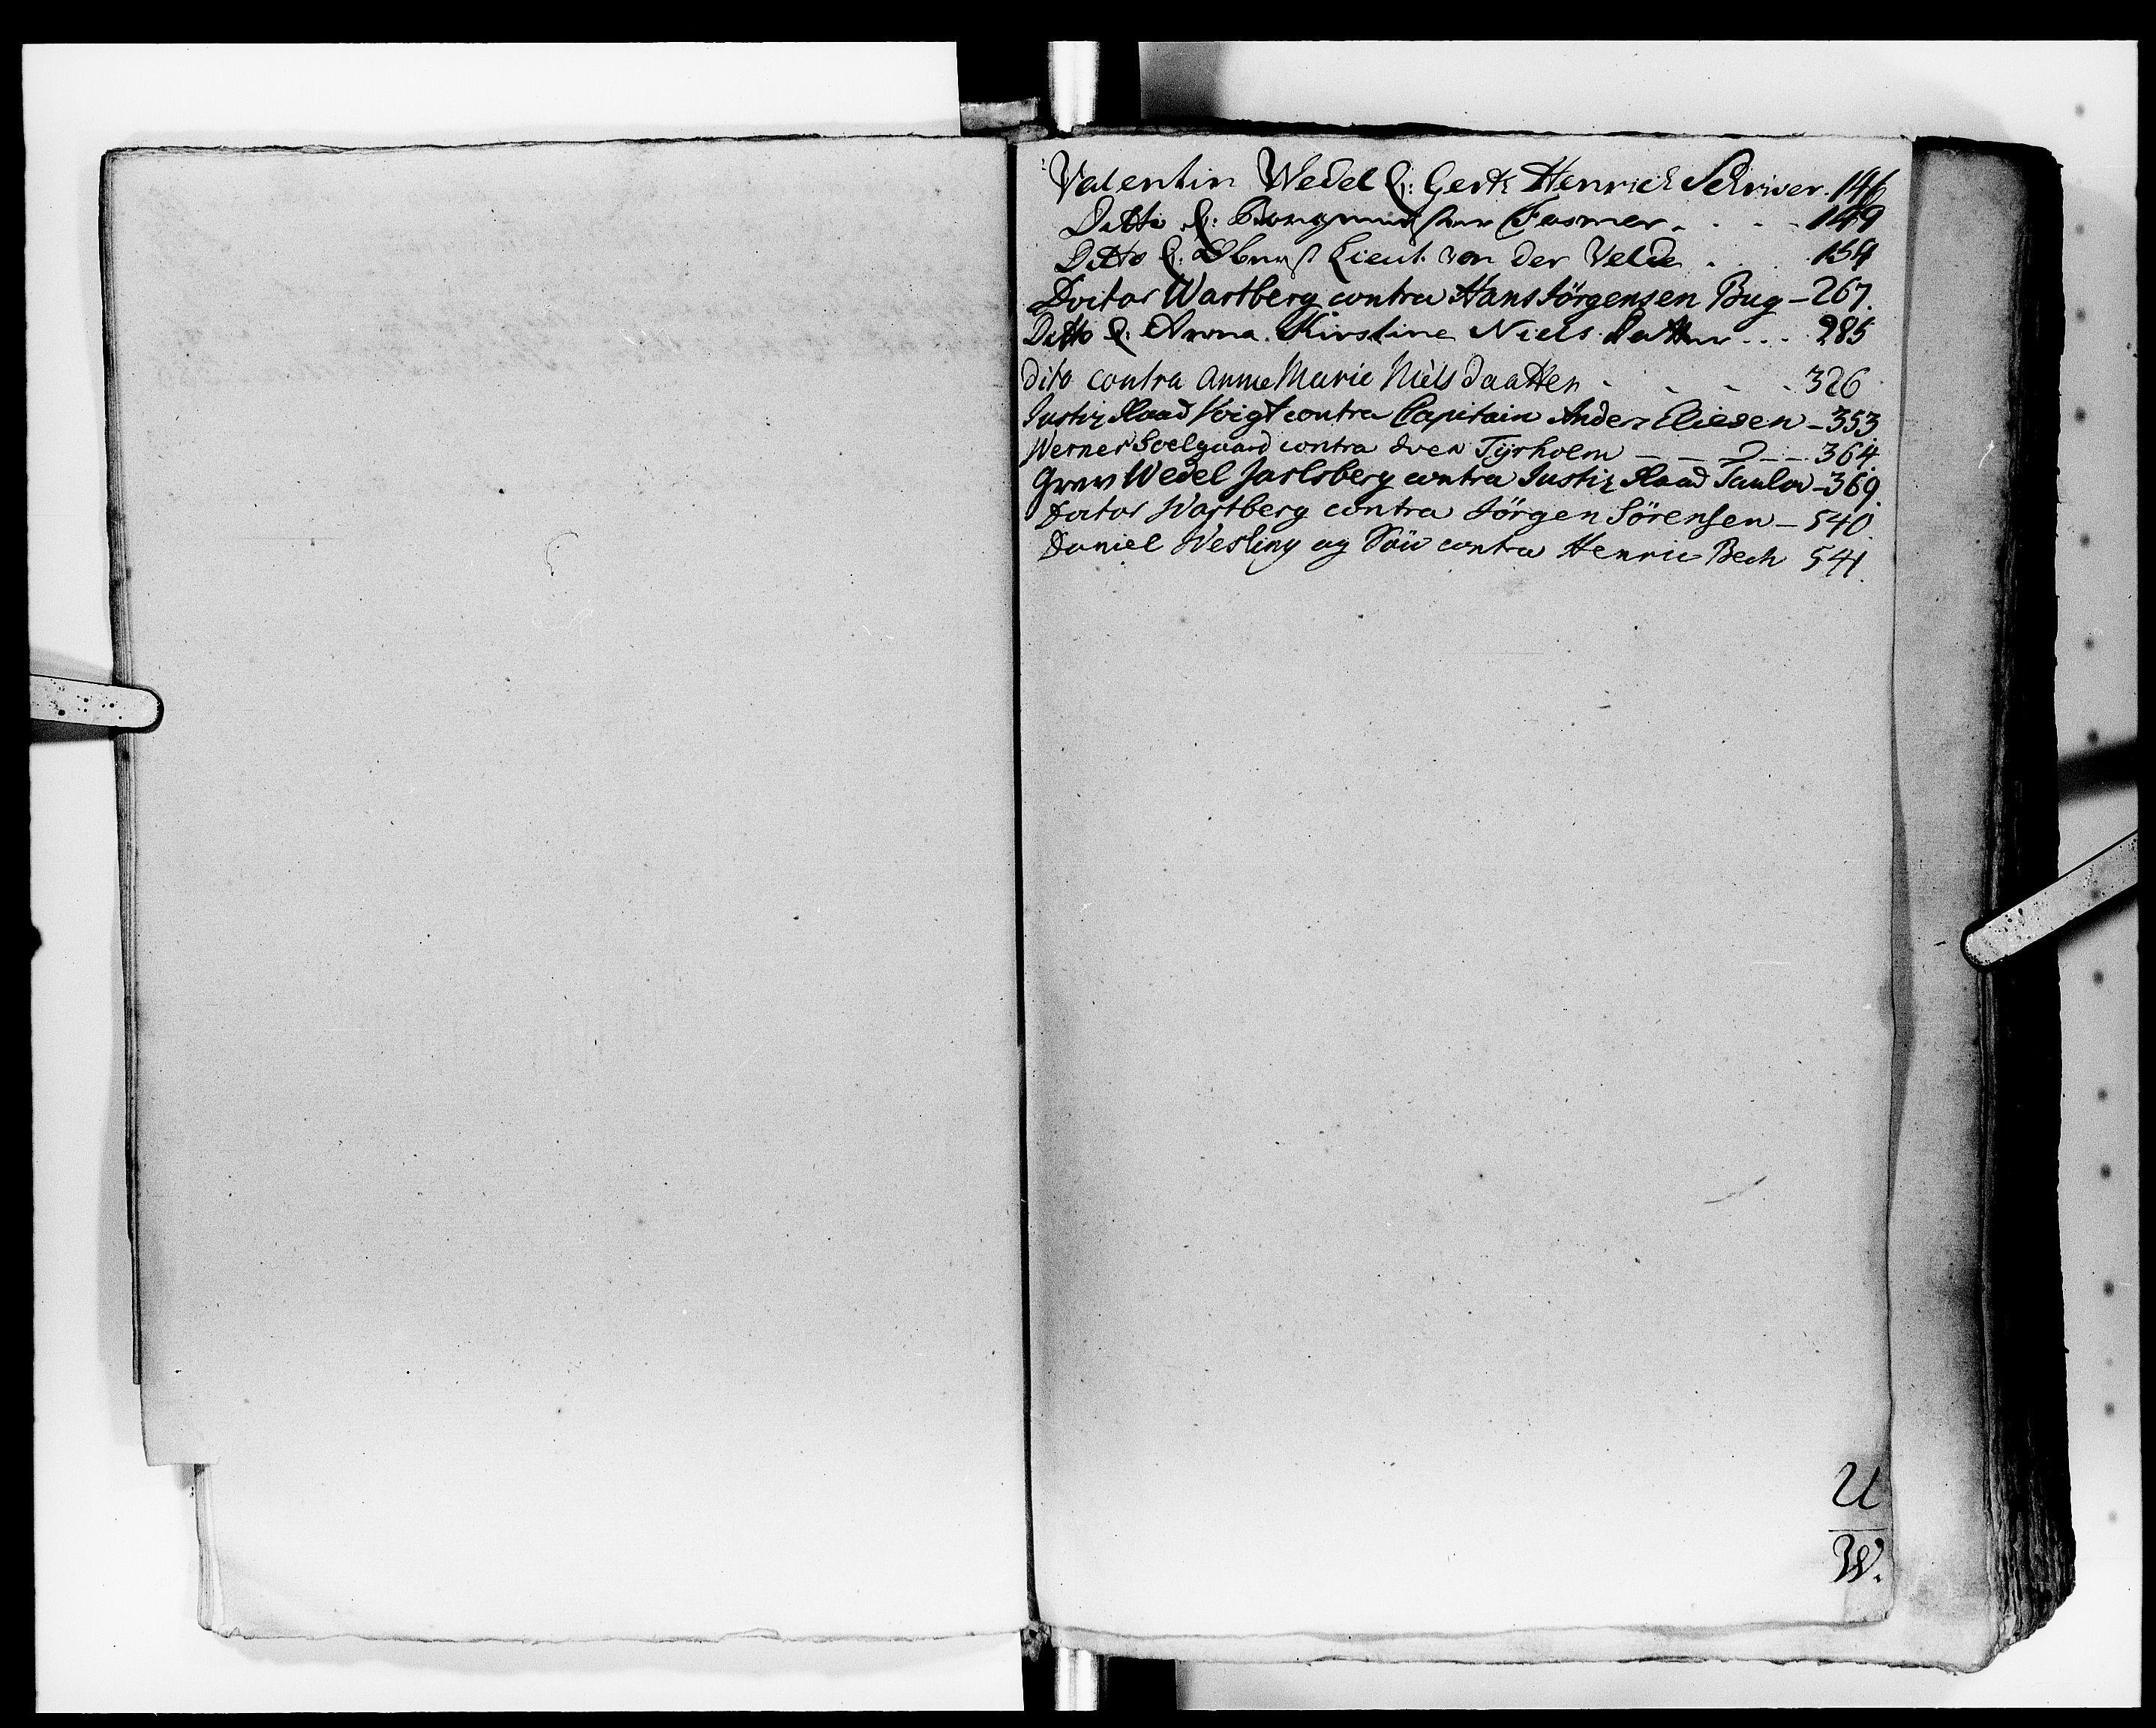 Valentin Wedel C: Gert Henrich Schriver. 146
Ditto C: Borgmester Fasmer. . . . - 149
Ditto C: Obrist Lieut. von der Velde . . . 154
Doctor Wartberg contra Hans Jörgensen Bug - 267.
Ditto C: Anna Kirstine Niels Datter . . . 285
dito contra Anne Marie Niels daatter - - - - 326
Justiz Raad Voigt contra Capitain Anders Eliesen - 353
Werner Soelgaard contra Iver Tyrholm - - - - 364
Grev Wedel Jarlsberg contra Justiz Raad Paulow - 369.
Doctor Wartberg contra Jörgen Sörensen - 540.
Daniel Wesling og contra Henric Bech 541.
U
W.